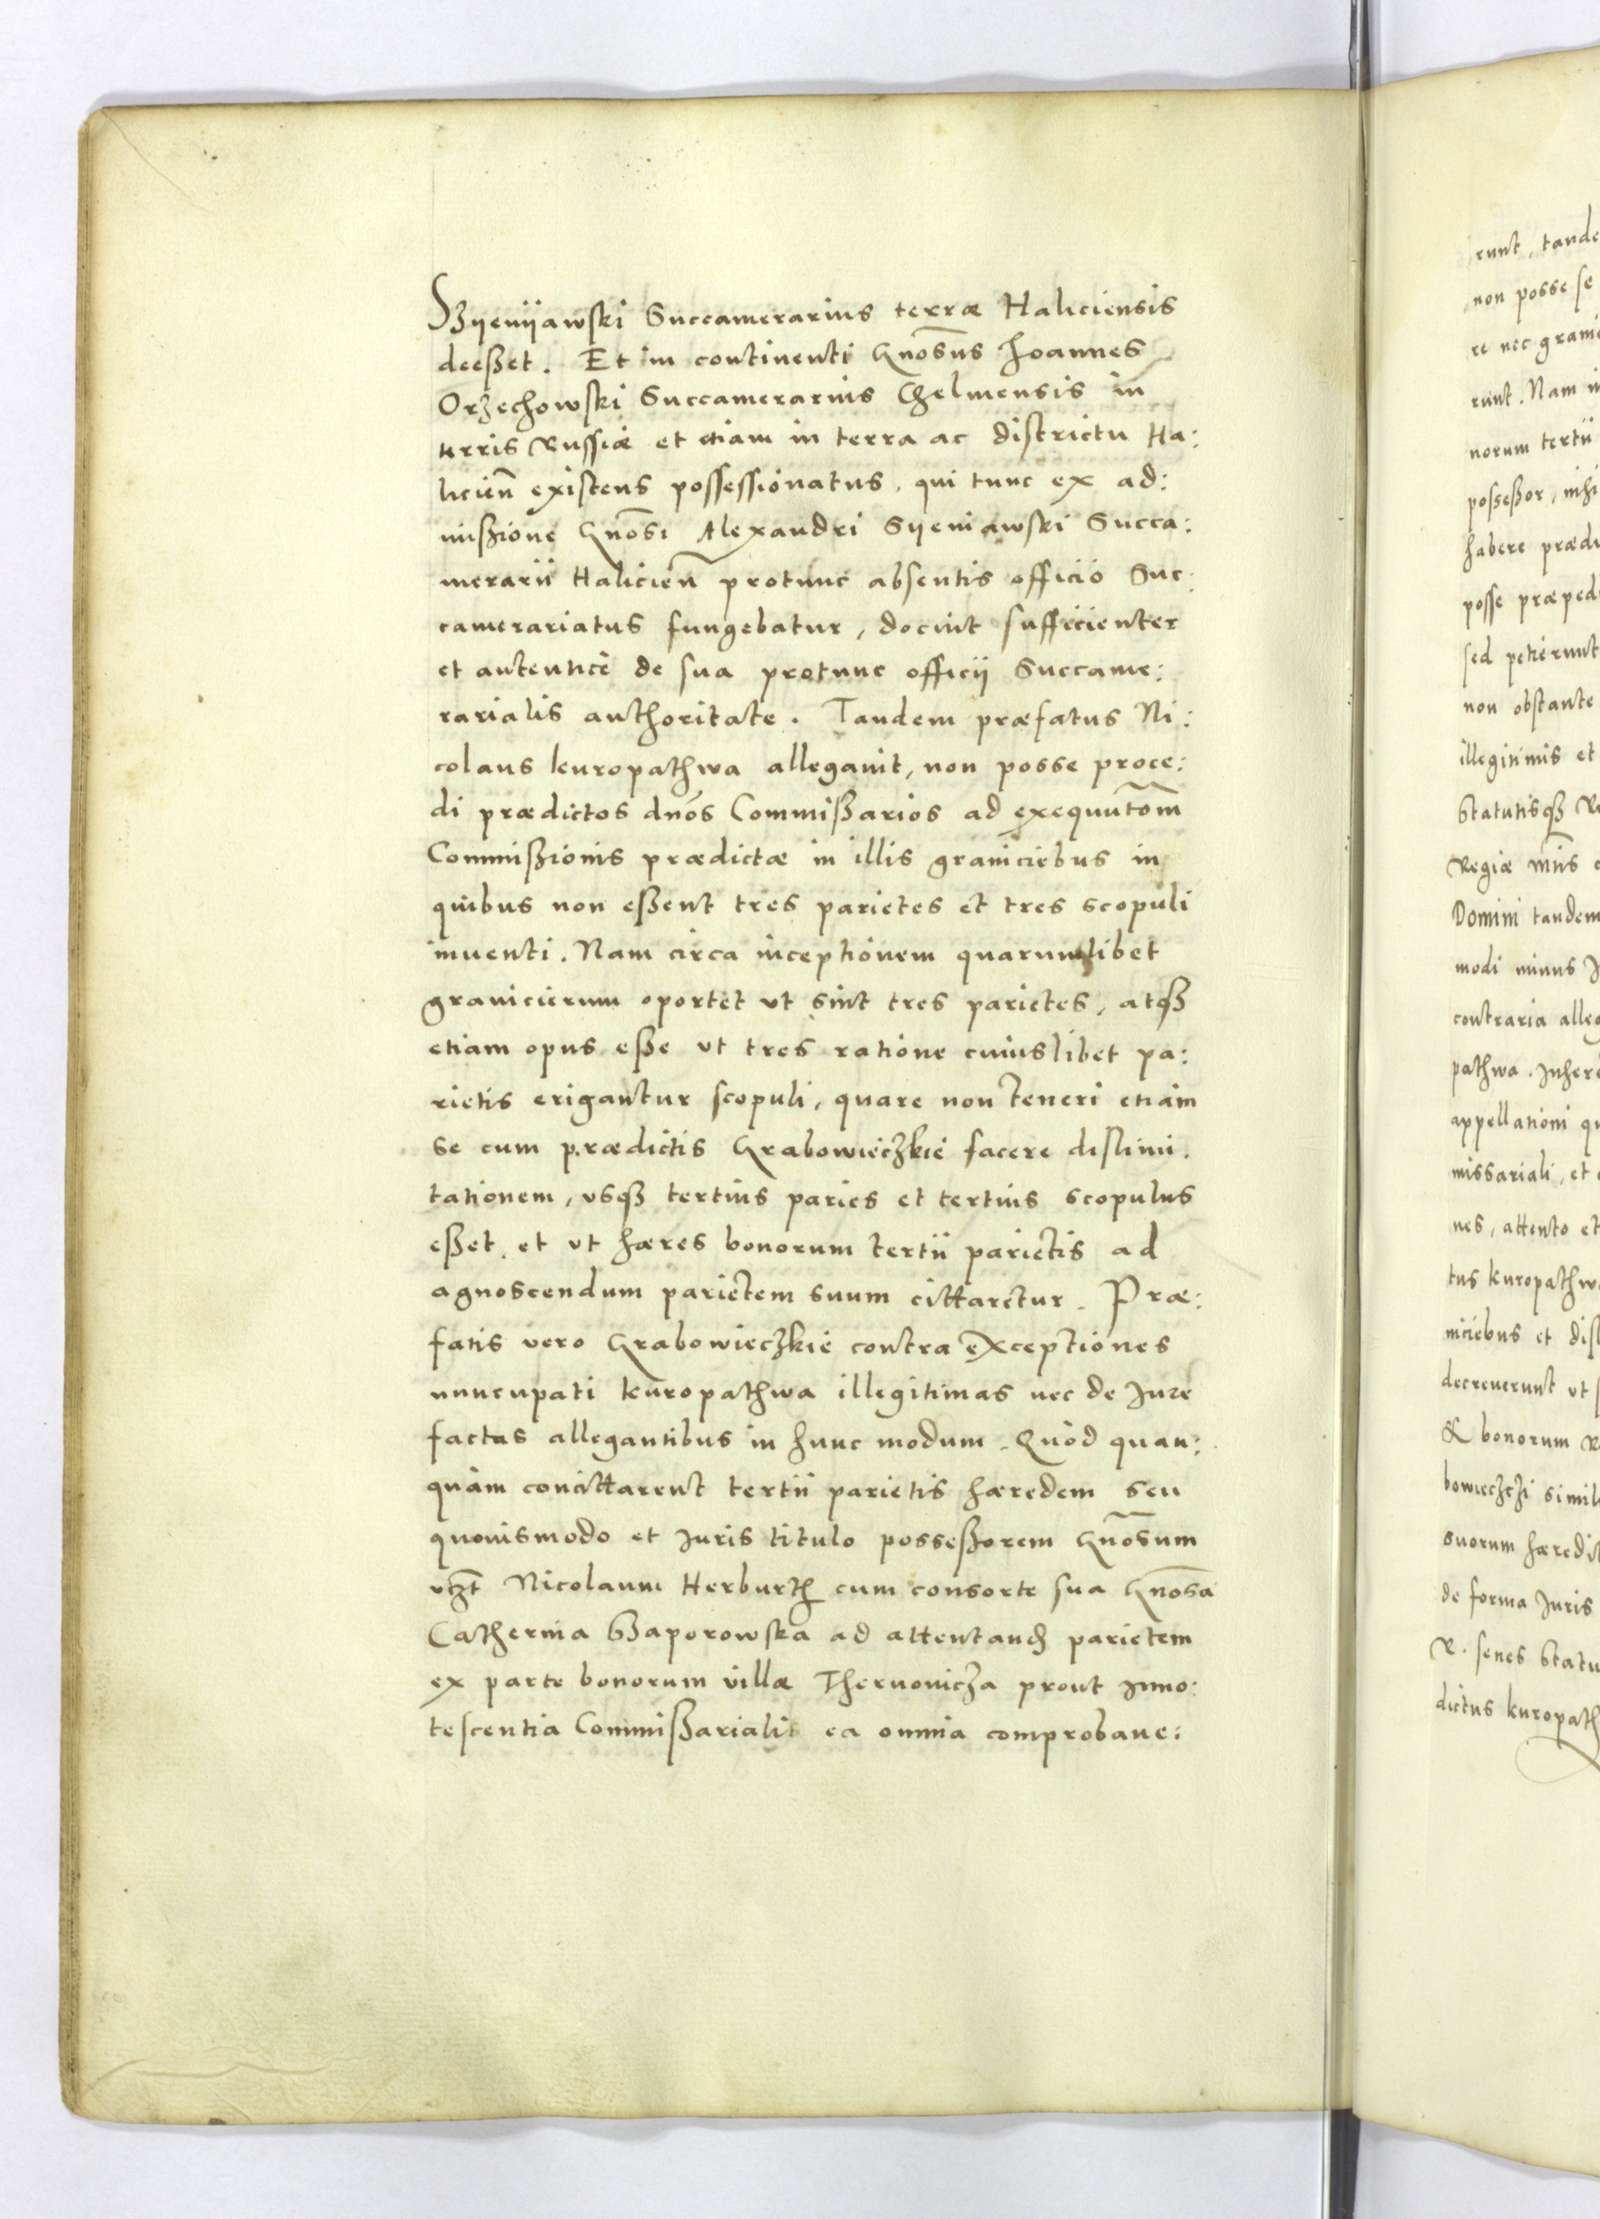 Syenijawski Succamerarius terræ Haliciensis
deeßet. Et in continenti Gnosus Joannes
Orzechowski Succamerarius Chelmensis in
terris Russiæ et etiam in terra ac districtu Ha:
licien existens possessionatus, qui tunc ex ad:
mißione Gnosi Alexandri Syeniawski Succa:
merarii Halicien protunc absentis officio Suc:
camerariatus fungebatur, docuit sufficienter
et autenticè de sua protunc officij Succame:
rarialis authoritate. Tandem præfatus Ni:
colaus kuropathwa allegauit, non posse proce:
di prædictos dnos Commißarios ad exequutom
Commißionis prædictæ in illis graniciebus in
quibus non eßent tres parietes et tres scopuli
inuenti. Nam circa inceptionem quarumlibet
granicierum oportet vt sint tres parietes, atqz
etiam opus eße vt tres ratione cuiuslibet pa:
rietis erigantur scopuli, quare non teneri etiam
se cum prædictis Grabowieczkie facere dislimi.
tationem, vsqz tertius paries et tertius scopulus
eßet, et vt hæres bonorum tertii parietis ad
agnoscendum parietem suum cittaretur. Præ:
fatis vero Grabowieczkie contra exceptiones
nuncupati kuropathwa illegitimas nec de Jure
factas allegantibus in hunc modum. Quòd quan:
quàm concittarent tertii parietis hæredem seu
quouismodo et Juris titulo posseßorem Gnosum
vtzt Nicolaum Herburth cum consorte sua Gnosa
Catherina Szaporowska ad attentand parietem
ex parte bonorum villæ Theruouicza prout Inno:
tescentia Commißarialis ea omnia comprobaue:
runt, tande
non posse se
runt. Nam in
norum tertii
poßeßor, nihi
habere prædi
posse præpedi
sed petierunt
non obstante
illegitimis et
Statutisqz Re
Regiæ mtis
Domini tandem
modi minus J
contraria alleg
pathwa. Inhere
appellationi qu
missariali, et
nes, attento et
tus kuropathwa
niciebus et disl
decreuerunt vt
& bonorum
bowieczkzi simil
suorum hæredit
de forma Juris
R. senes Statu
dictus kuropath